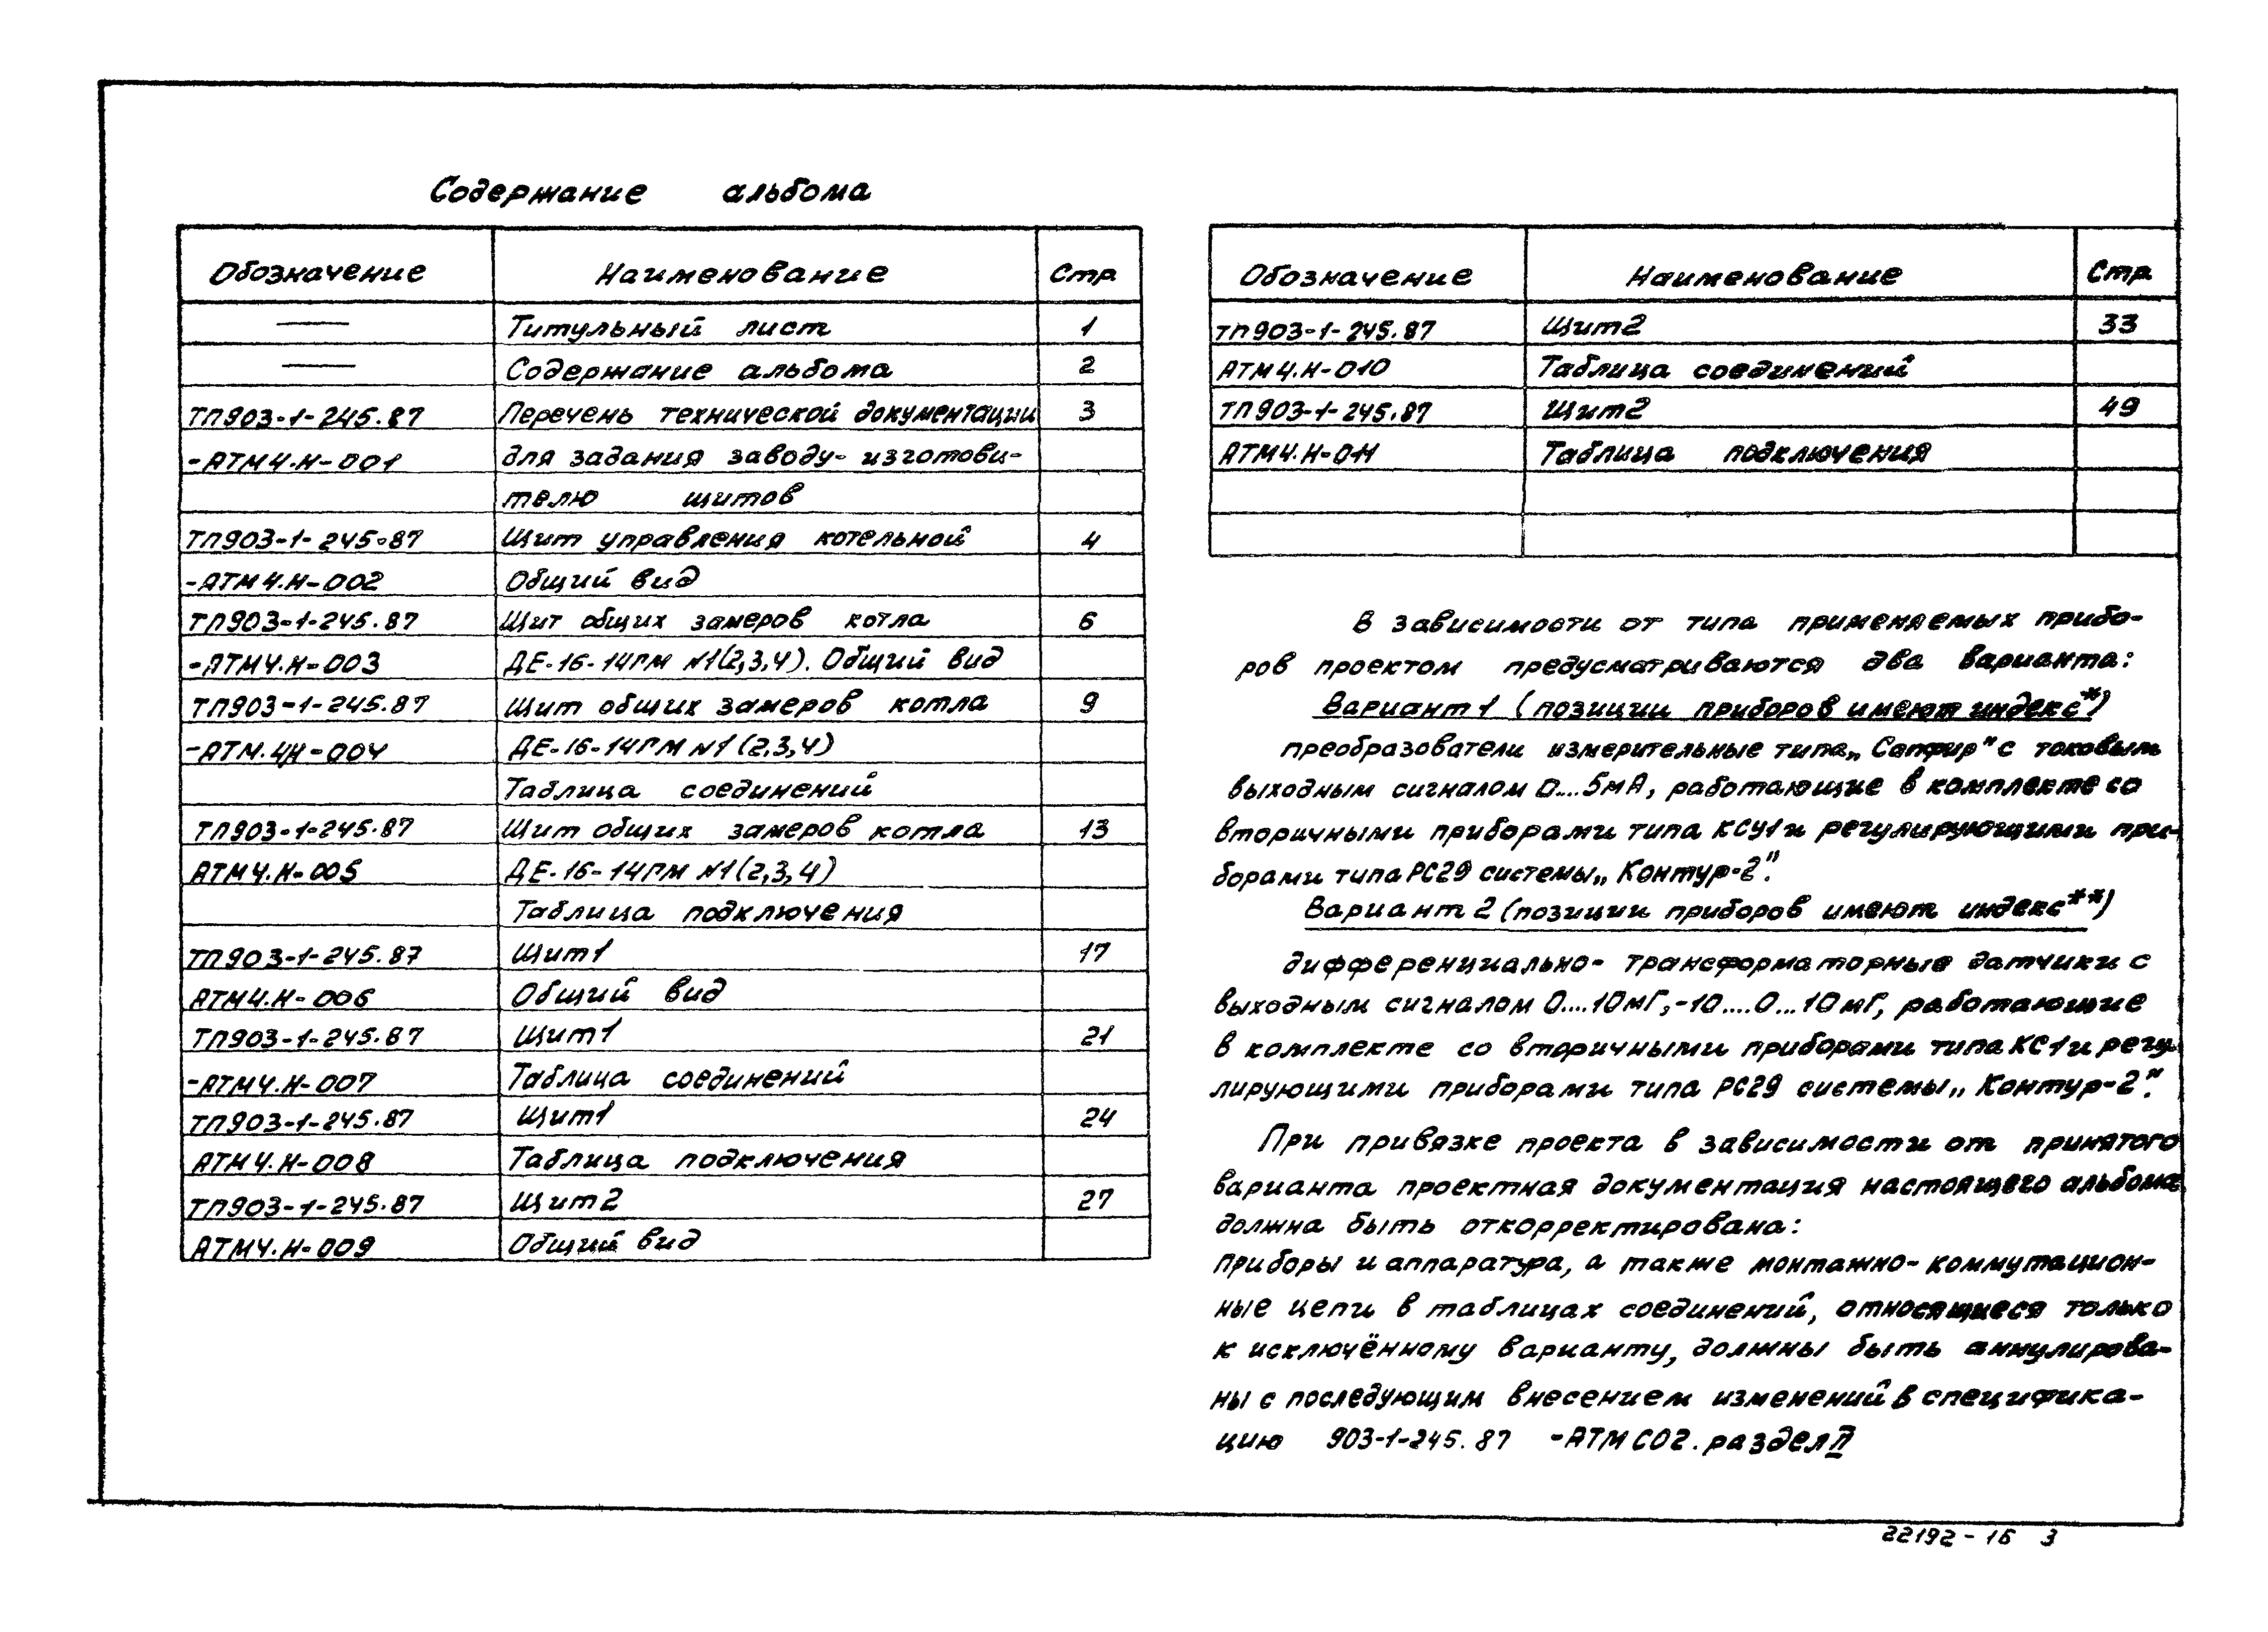 Содержание альбома
Обозначение Наименование Стр
— Титульный лист 1
— Содержание альбома 2
ТП903-1-245.87 Перечень технической документации 3
-АТМ4.Н-001 для задания заводу-изготови-
телю щитов
ТП903-1-245.87 Щит управления котельной 4
-АТМ4.Н-002 Общий вид
ТП903-1-245.87 Щит общих замеров котла 6
-АТМ4.Н-003 ДЕ-16-14ГМ №1(2,3,4). Общий вид
ТП903-1-245.87 Щит общих замеров котла 9
-АТМ.4Н-004 ДЕ-16-14ГМ №1(2,3,4)
Таблица соединений
ТП903-1-245.87 Щит общих замеров котла 13
АТМ4.Н-005 ДЕ-16-14ГМ №1(2,3,4)
Таблица подключения
ТП903-1-245.87 Щит1 17
АТМ4.Н-006 Общий вид
ТП903-1-245.87 Щит1 21
-АТМ4.Н-007 Таблица соединений
ТП903-1-245.87 Щит1 24
АТМ4.Н-008 Таблица подключения
ТП903-1-245.87 Щит2 27
АТМ4.Н-009 Общий вид
Обозначение Наименование Стр
ТП903-1-245.87 Щит2 33
АТМ4.Н-010 Таблица соединений
ТП903-1-245.87 Щит2 49
АТМ4.Н-011 Таблица подключения
В зависимости от типа применяемых прибо-
ров проектом предусматриваются два варианта:
Вариант 1 (позиции приборов имеют индекс*)
преобразователи измерительные типа „Сапфир" с токовым
выходным сигналом 0....5мА, работающие в комплекте со
вторичными приборами типа КСУ1 и регулирующими при-
борами типа РС29 системы „Контур-2".
Вариант 2 (позиции приборов имеют индекс**)
дифференциально-трансформаторные датчики с
выходным сигналом 0....10мГ,-10....0...10мГ, работающие
в комплекте со вторичными приборами типа КС1 и регу-
лирующими приборами типа РС29 системы „Контур-2".
При привязке проекта в зависимости от принятого
варианта проектная документация настоящего альбома
должна быть откорректирована:
приборы и аппаратура, а также монтажно-коммутацион-
ные цепи в таблицах соединений, относящиеся только
к исключённому варианту, должны быть аннулирова-
ны с последующим внесением изменений в специфика-
цию 903-1-245.87 -АТМ СО2. раздел П
22192-16 3